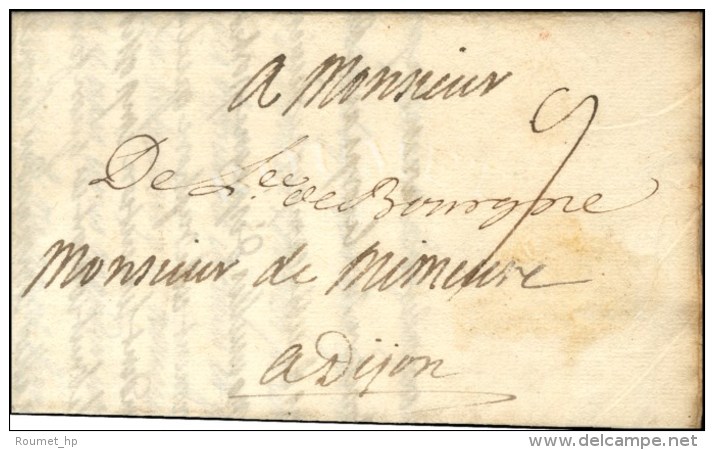 A Monsieur
De L. ee de Bourgne
Monsieur de Mimeure
a Dijon
Roumet_hp
delcampe.net